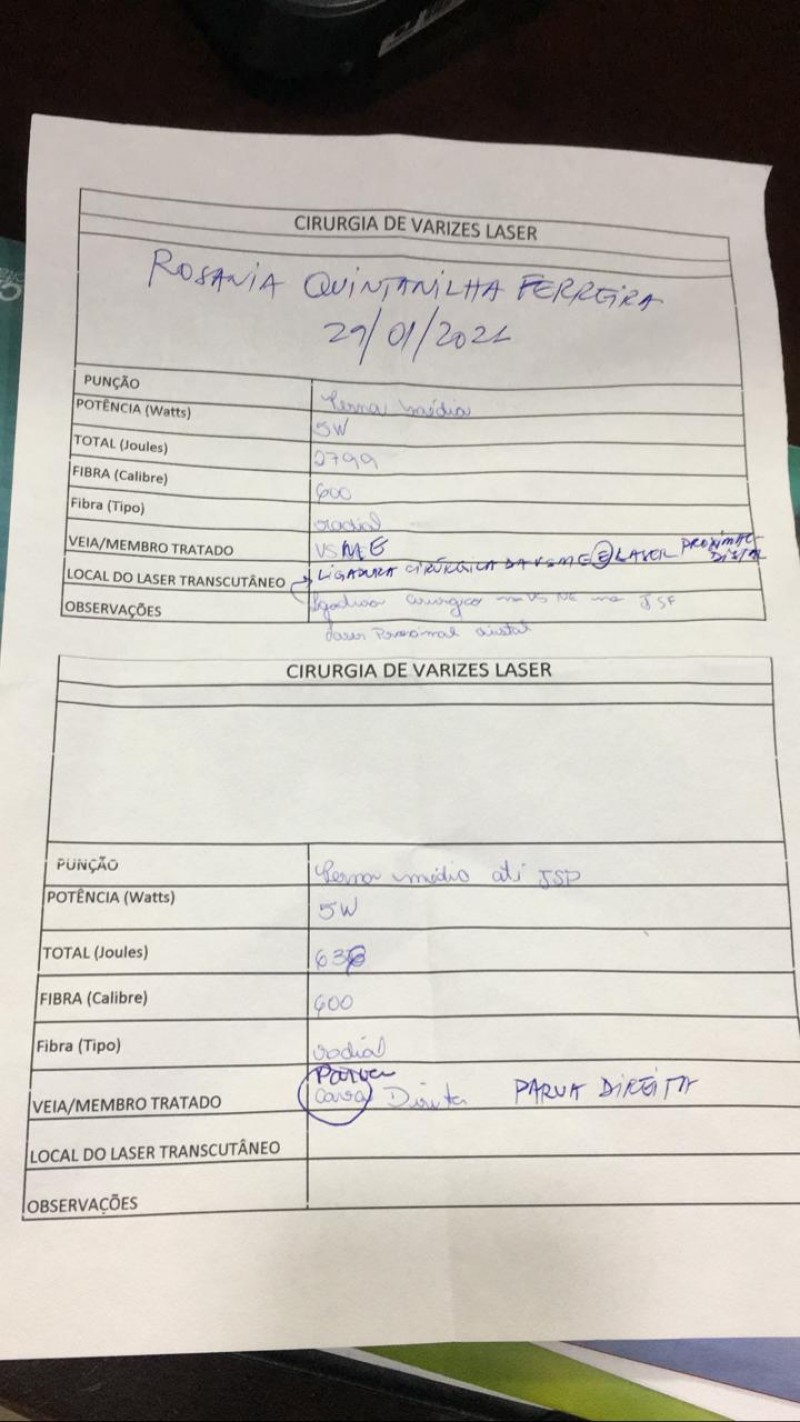 CIRURGIA DE VARIZES LASER
ROSANIA QUINTANILHA FERREIRA
29/01/2021
PUNÇÃO Perna média
POTÊNCIA (Watts) 5W
TOTAL (Joules) 2799
FIBRA (Calibre) 600
Fibra (Tipo) radial
VEIA/MEMBRO TRATADO VSME
LOCAL DO LASER TRANSCUTÂNEO LIGADURA CIRÚRGICA DA VSME E LASER PROXIMAL DISTAL
OBSERVAÇÕES ligadura cirurgica na JSF
laser Proximal
CIRURGIA DE VARIZES LASER
PUNÇÃO Perna médio até JSP
POTÊNCIA (Watts) 5W
TOTAL (Joules) 636
FIBRA (Calibre) 600
Fibra (Tipo) radial
Parva
VEIA/MEMBRO TRATADO Direita PARVA DIREITA
LOCAL DO LASER TRANSCUTÂNEO
OBSERVAÇÕES